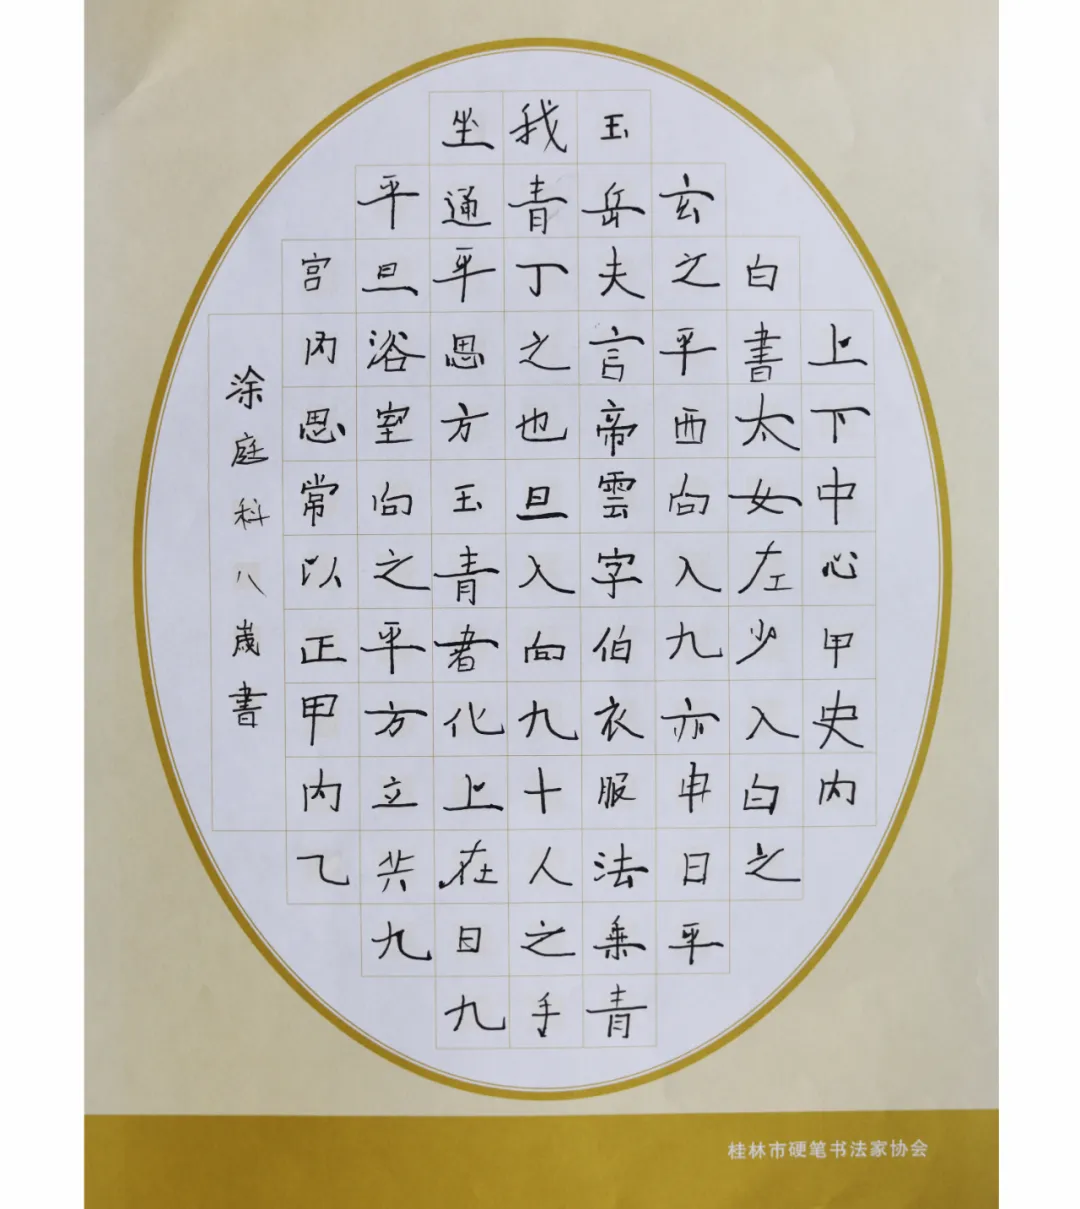 上下中心甲史内
白書太女左少入白之
玄之平西向入九亦申日平
玉岳夫言帝雲字伯衣服法乗青
我青丁之也旦入向九十人之手
坐通平思方玉青者化上在日九
平旦浴室向之平方立共九
宮内思常以正甲内乙
涂庭科八歲書
桂林市硬笔书法家协会